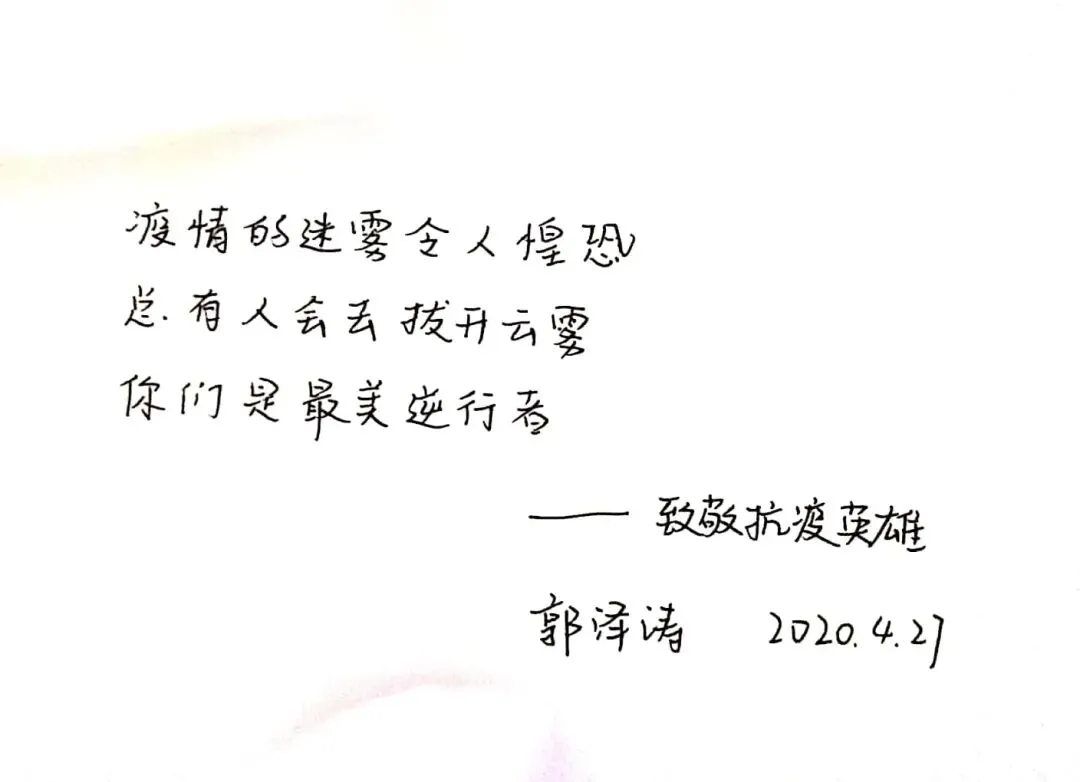 疫情的迷雾令人惶恐
总有人会去拔开云雾
你们是最美逆行者
——致敬抗疫英雄
郭泽涛 2020.4.27